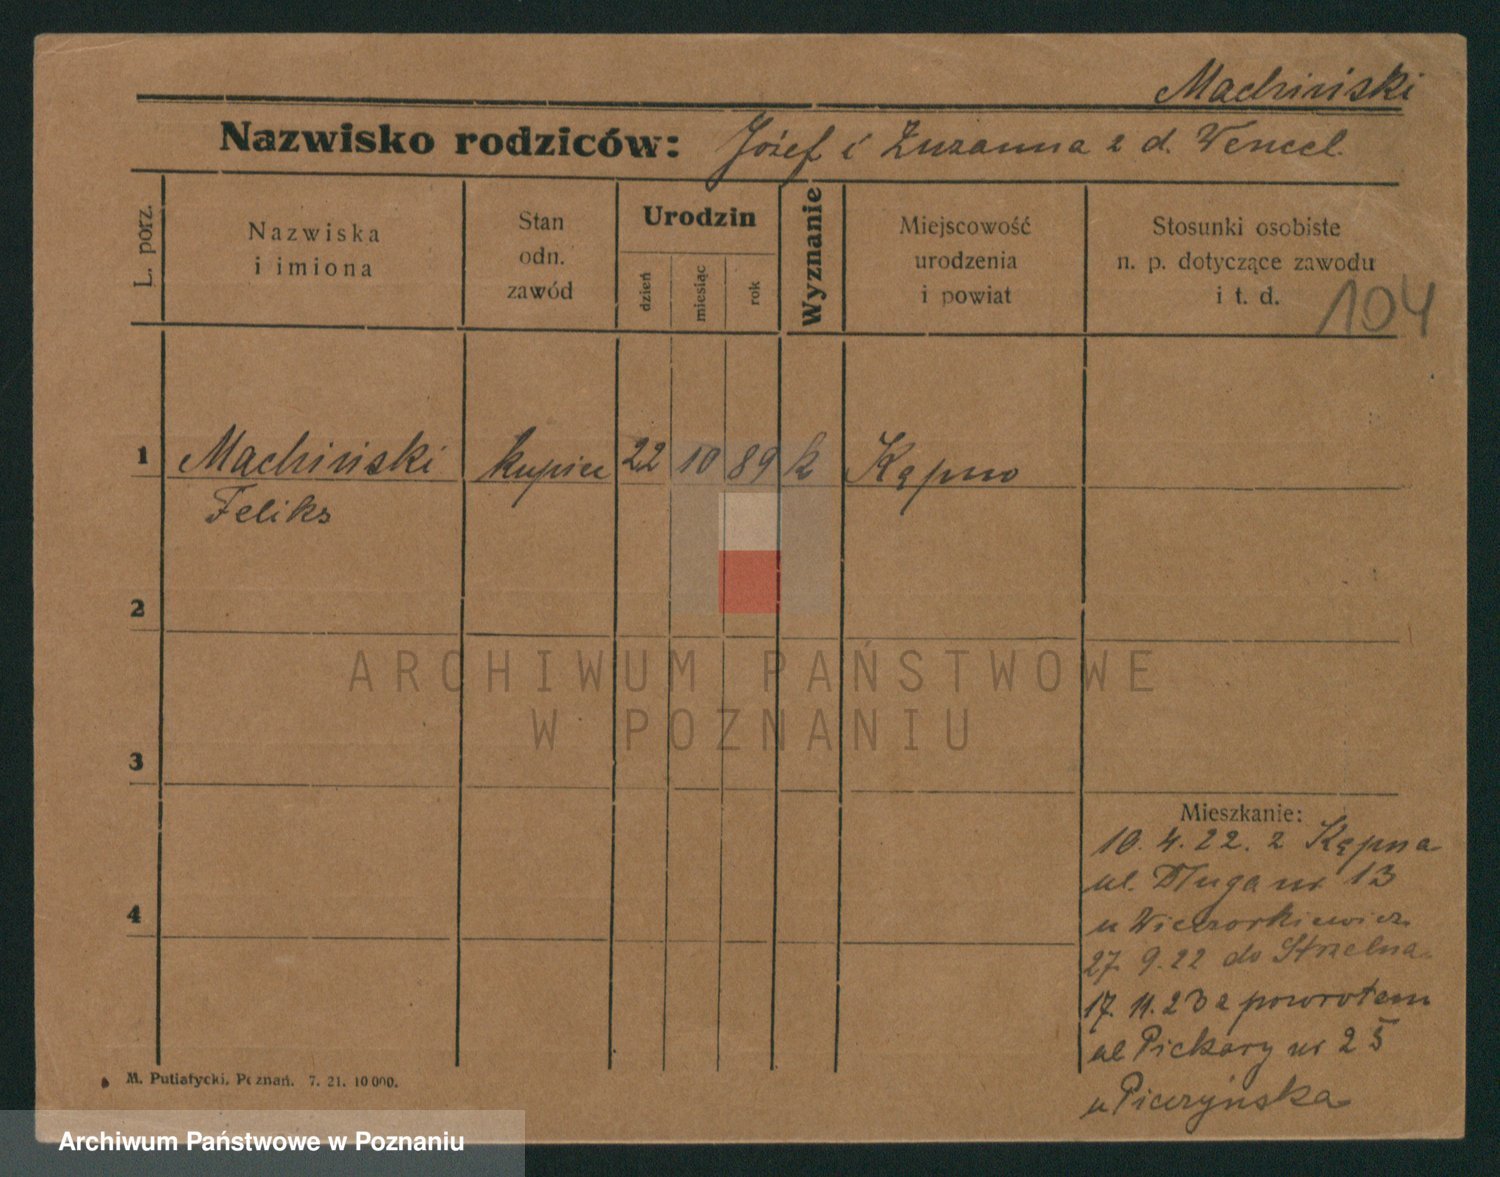 Machiński
Nazwisko rodziców: Józef i Zuzanna z d. Wencel.
L. porz.
Nazwiska
i imiona
Stan
odn.
zawód
Urodzin
dzień
miesiąc
rok
Wyznanie
Miejscowość
urodzenia
i powiat
Stosunki osobiste
n. p. dotyczące zawodu
i t. d.
104
1 Machiński kupiec 22 10 89 k Kępno
Feliks
2
ARCHIWUM PAŃSTWOWE
W POZNANIU
3
Mieszkanie:
10. 4. 22. z Kępna
ul. Długa nr 13
4
u Wieczorkiewicz
27. 9. 22 do Strzelna
17. 11. 23 z powrotem
ul Piekary nr 25
u
M. Putiatycki, Poznań. 7. 21. 10 000.
Archiwum Państwowe w Poznaniu